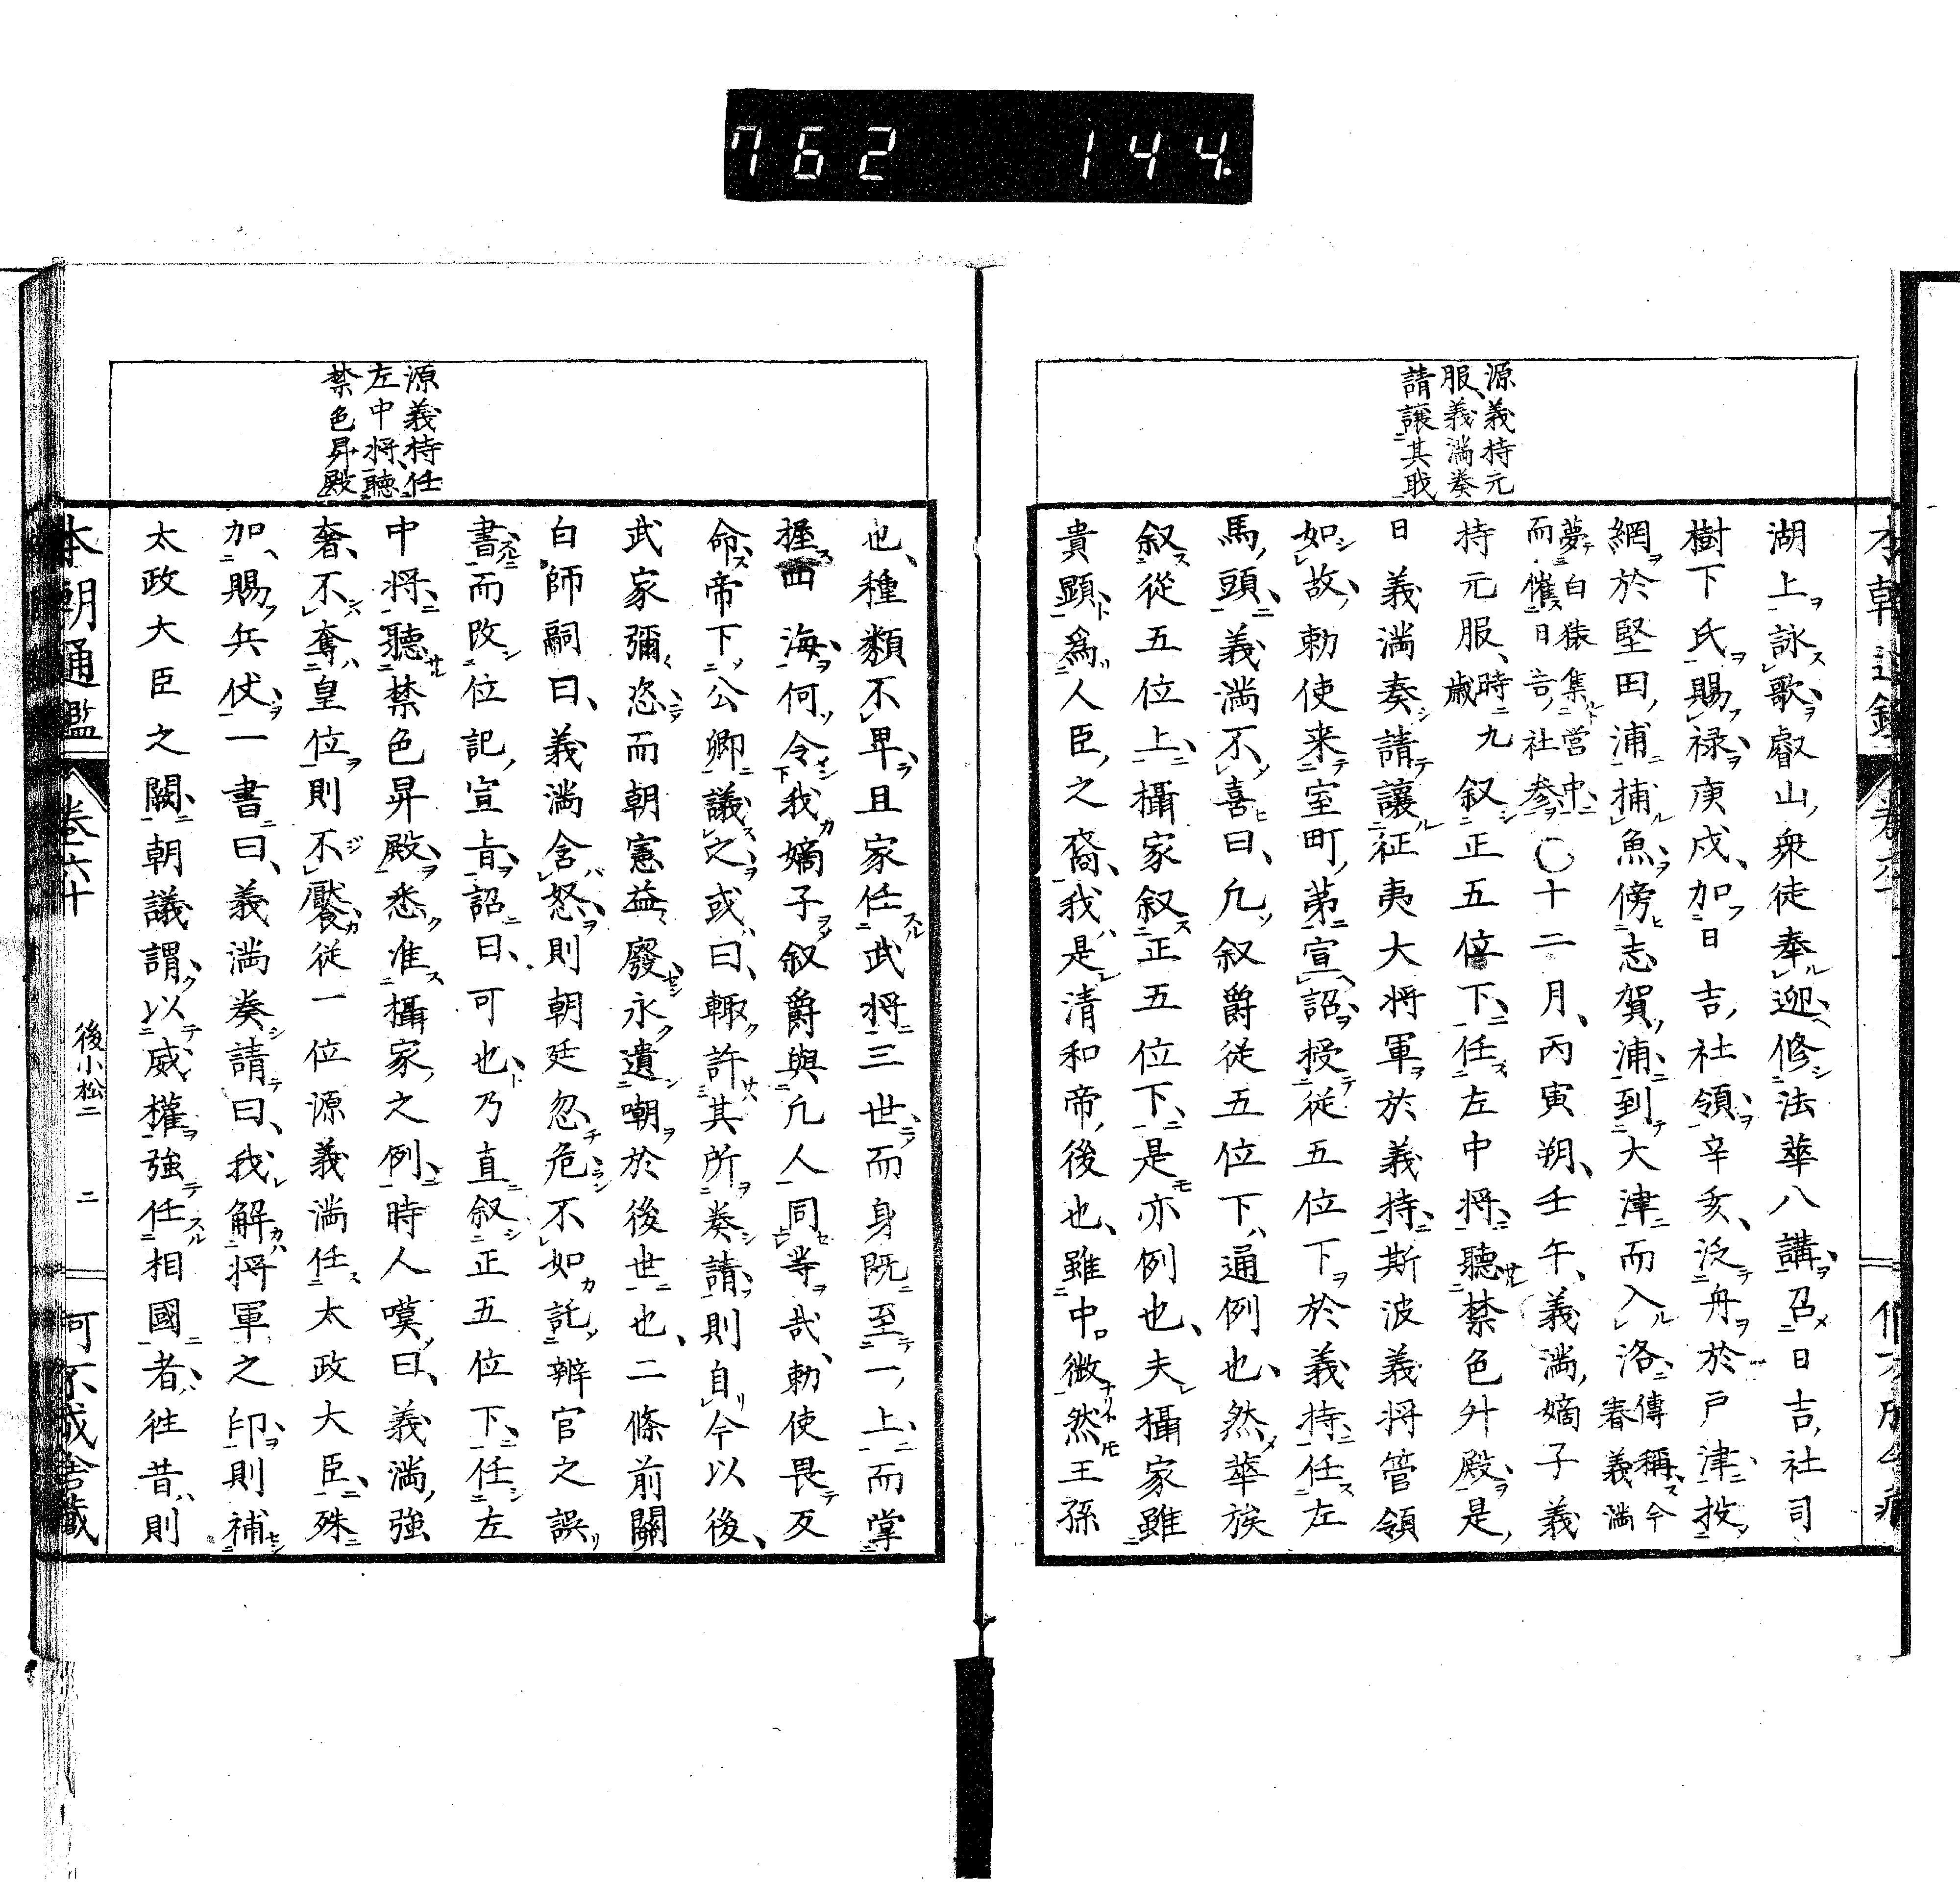 762 144.
源義持元
服、義満奏
請讓其職
湖上詠歌、叡山衆徒奉迎、修法華八講、召日吉社司
樹下氏賜祿、庚戌、加日吉社領、辛亥、泛舟於戸津、投
網於堅田浦、捕魚、傍志賀浦到大津而入洛、傳稱、今春義満
夢白猿集営中、而催日吉社参、〇十二月、丙寅朔、壬午、義満嫡子義
持元服、時九歳叙正五位下、任左中将、聴禁色舛殿、是
日義満奏請讓征夷大将軍於義持、斯波義将管領
如故、勅使来室町第、宣詔、授従五位下於義持、任左
馬頭、義満不喜曰、凢叙爵従五位下、通例也、然華族
叙從五位上、攝家叙正五位下、是亦例也、夫攝家雖
貴顕為人臣之裔、我是清和帝後也、雖中微然王孫
也、種類不卑、且家任武将三世、而身既至一上、而掌
握四海、何令我嫡子叙爵與凢人同等哉、勅使畏反
命、帝下公卿議之、或曰、輙許其所奏請、則自今以後、
武家彌恣而朝憲益廢、永遺嘲於後世也、二條前關
白師嗣曰、義満含怒、則朝廷忽危、不如託辨官之誤
書、而改位記宣旨、詔曰、可也、乃直叙正五位下、任左
中将、聴禁色昇殿、悉准攝家之例、時人嘆曰、義満強
奢、不奪皇位則不饜、従一位源義満任太政大臣、殊
加賜兵仗、一書曰、義満奏請曰、我解将軍之印、則補
太政大臣之闕、朝議謂、以威權強任相國者、往昔則
源義持任
左中将、聴
禁色昇殿
本朝通鑑 卷六十 後小松二 二